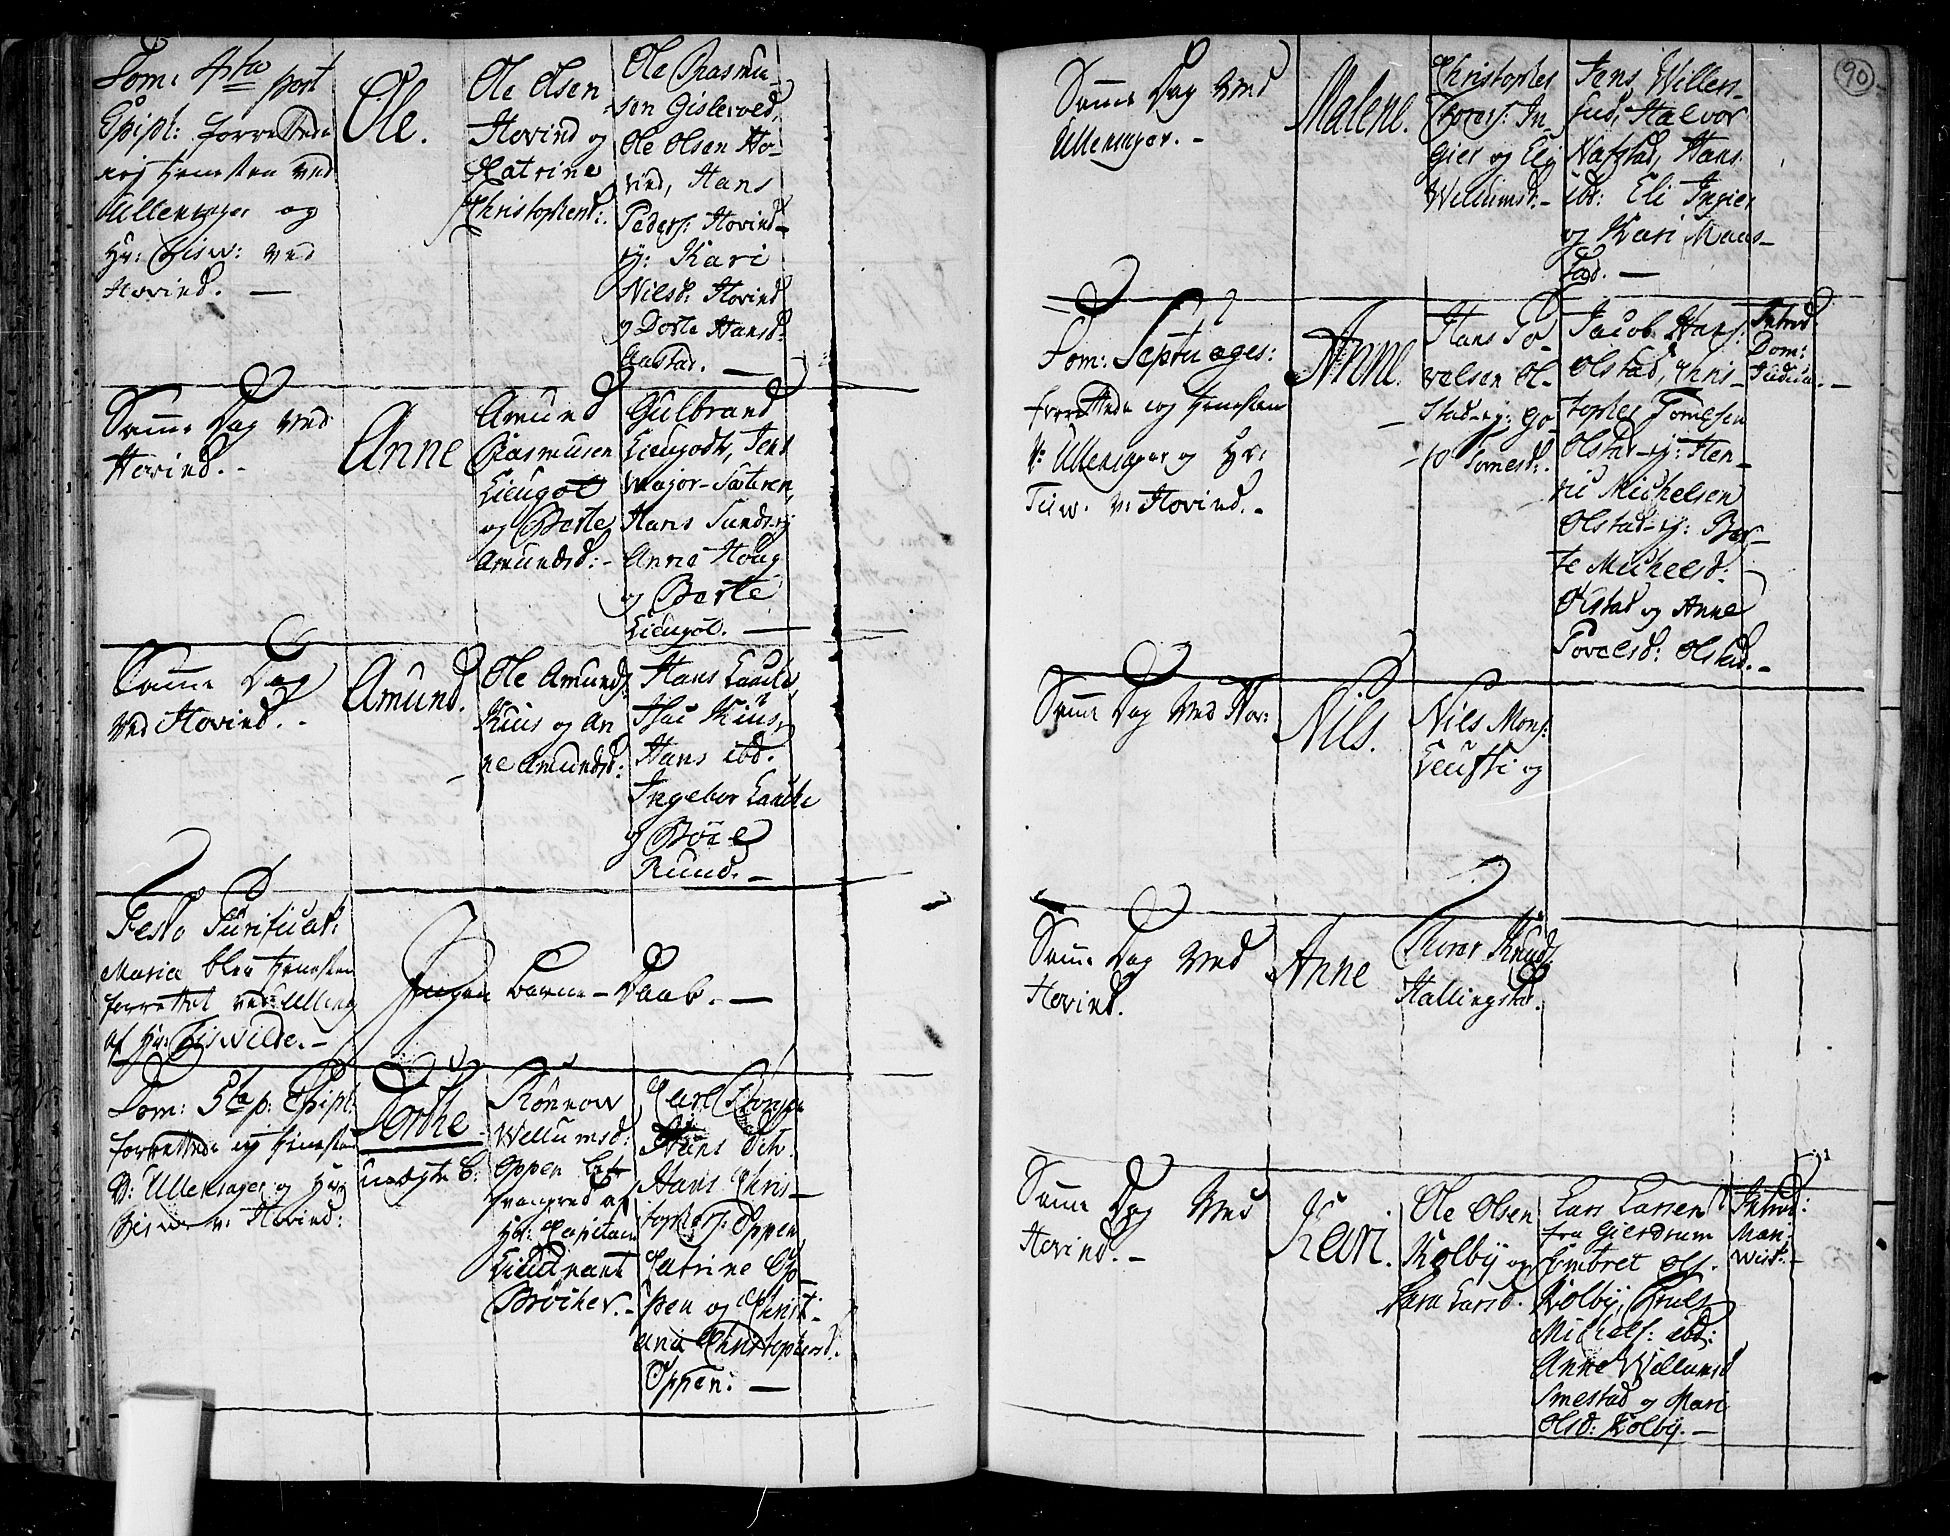 90
Dom: 4te post
Epiph: forrettede
jeg tjenesten ved
Ullensager og
Hr: Tisw: ved
Hovind. —
Ole.
Ole Olsen
Hovind og
Catrine
Christophersd:
Ole Rasmu-
sen Gislevold,
Ole Olsen Ho-
vind, Hans
Peders: Hovind-
ej: Kari
Nilsd: Hovind
og Dorte Hansd:
Aastad. —
Samme Dag ved
Hovind. -
Anne
Amund
Rasmusen
Lieugot
og Berte
Amundsd: -
Gulbrand
Lieugodt, Jens
Major-Sæteren,
Hans Sundsej
Anne Houg
og Berte
Lieugot. —
Samme Dag
ved Hovind. -
Amund.
Ole Amunds:
Kius og An
ne Amundsd:
Hans Laache,
Isac Kius,
Hans ibd.
Ingebor Laache
og Börte
Ruud. —
Festo Purificat:
Mariæ blev tjenesten
forrettet ved Ullens:
af Hr: Tiswilde. -
Ingen Barne-Daab. —
Dom: 5te p: Epiph:
forrettede jeg tjenesten
v: Ullensager og Hr:
Tisw: v: Hovind:
Dorthe
uægte B:
Rönnow
Wellumsd:
Oppen
besvangred af
Hr: Capitain
Lieutnant
Bröcher. -
Carl
Hans
Hans Chris-
tophers: Oppen,
Catrine Op-
pen og Christi-
ana Christophersd:
Oppen. —
Samme Dag ved
Ullensager. -
Malene.
Christopher
Thores: In-
gier og Eli
Wellumsd: -
Jens Willen-
sud, Halvor
Nafstad, Hans
ibd: Eli Ingier
og Kari Maus-
tad. —
Dom: Septuages:
forrettede jeg tjenesten
v: Ullensager og Hr:
Tisw. v: Hovind. -
Anne.
Hans Po-
velsen Ol-
stad-ej: Go-
ro Tomesd:.
Jacob Hans:
Olstad, Chris-
topher Tomesen
Olstad-ej: Hen-
ric Michelsen
Olstad-ej: Ber-
te Michelsd:
Olstad og Anne
Povelsd: Olstad. -
Introd:
Dom:
Judica. -
Samme Dag ved Hov:
Nils.
Nils Mons:
Leusti og
Samme Dag ved
Hovind.
Anne
Thorer Knuds:
Hallingstad.
Samme Dag ved
Hovind. -
Kari.
Ole Olsen
Kolby og
Sara Larsd.
Lars Larsen
fra Gierdrum
Embret Ols.
Kolby, Truls
Michels: ibd:
Anne Wellumsd
Smestad og Mari
Olsd: Kolby. —
Introd:
Mari